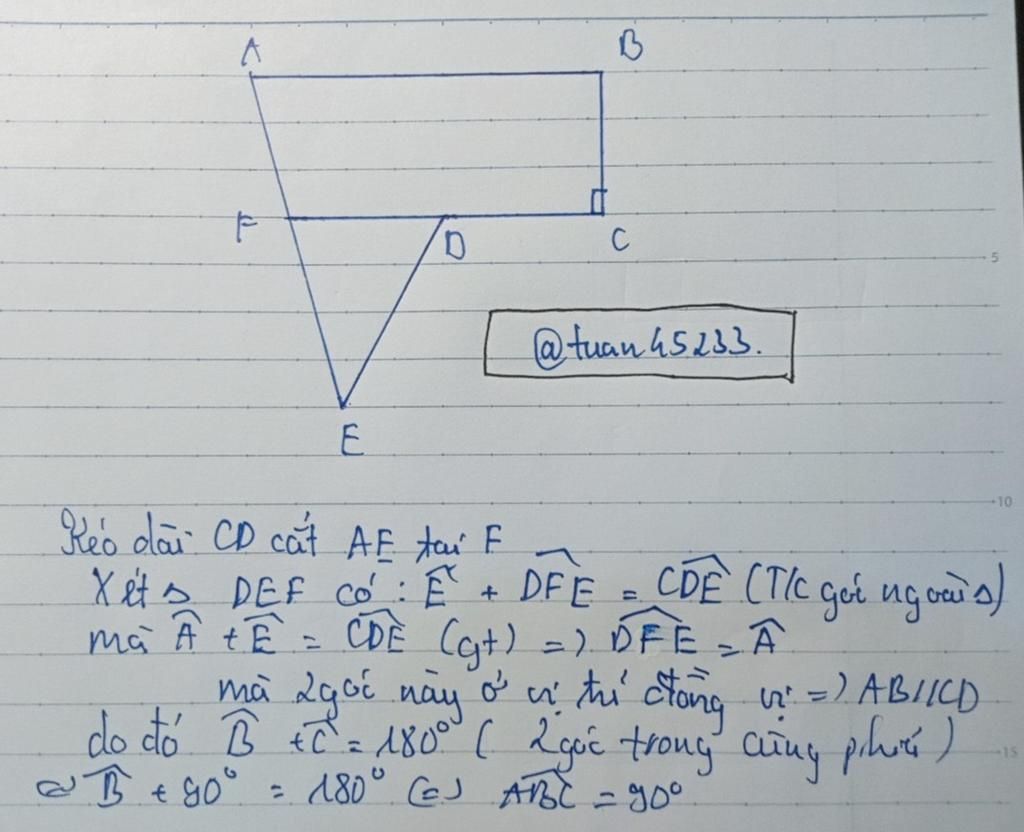 A
B
F
D
C
5
@tuan45233.
E
10
Kéo dài CD cắt AE tại F
Xét △ DEF có : Ê + DFE = CDE (T/c góc ngoài △)
mà Â + Ê = CDE (gt) => DFE = Â
mà 2 góc này ở vị trí đồng vị => AB//CD
do đó B + C = 180° ( 2 góc trong cùng phía )
15
<=> B + 90° = 180° <=> ABC = 90°